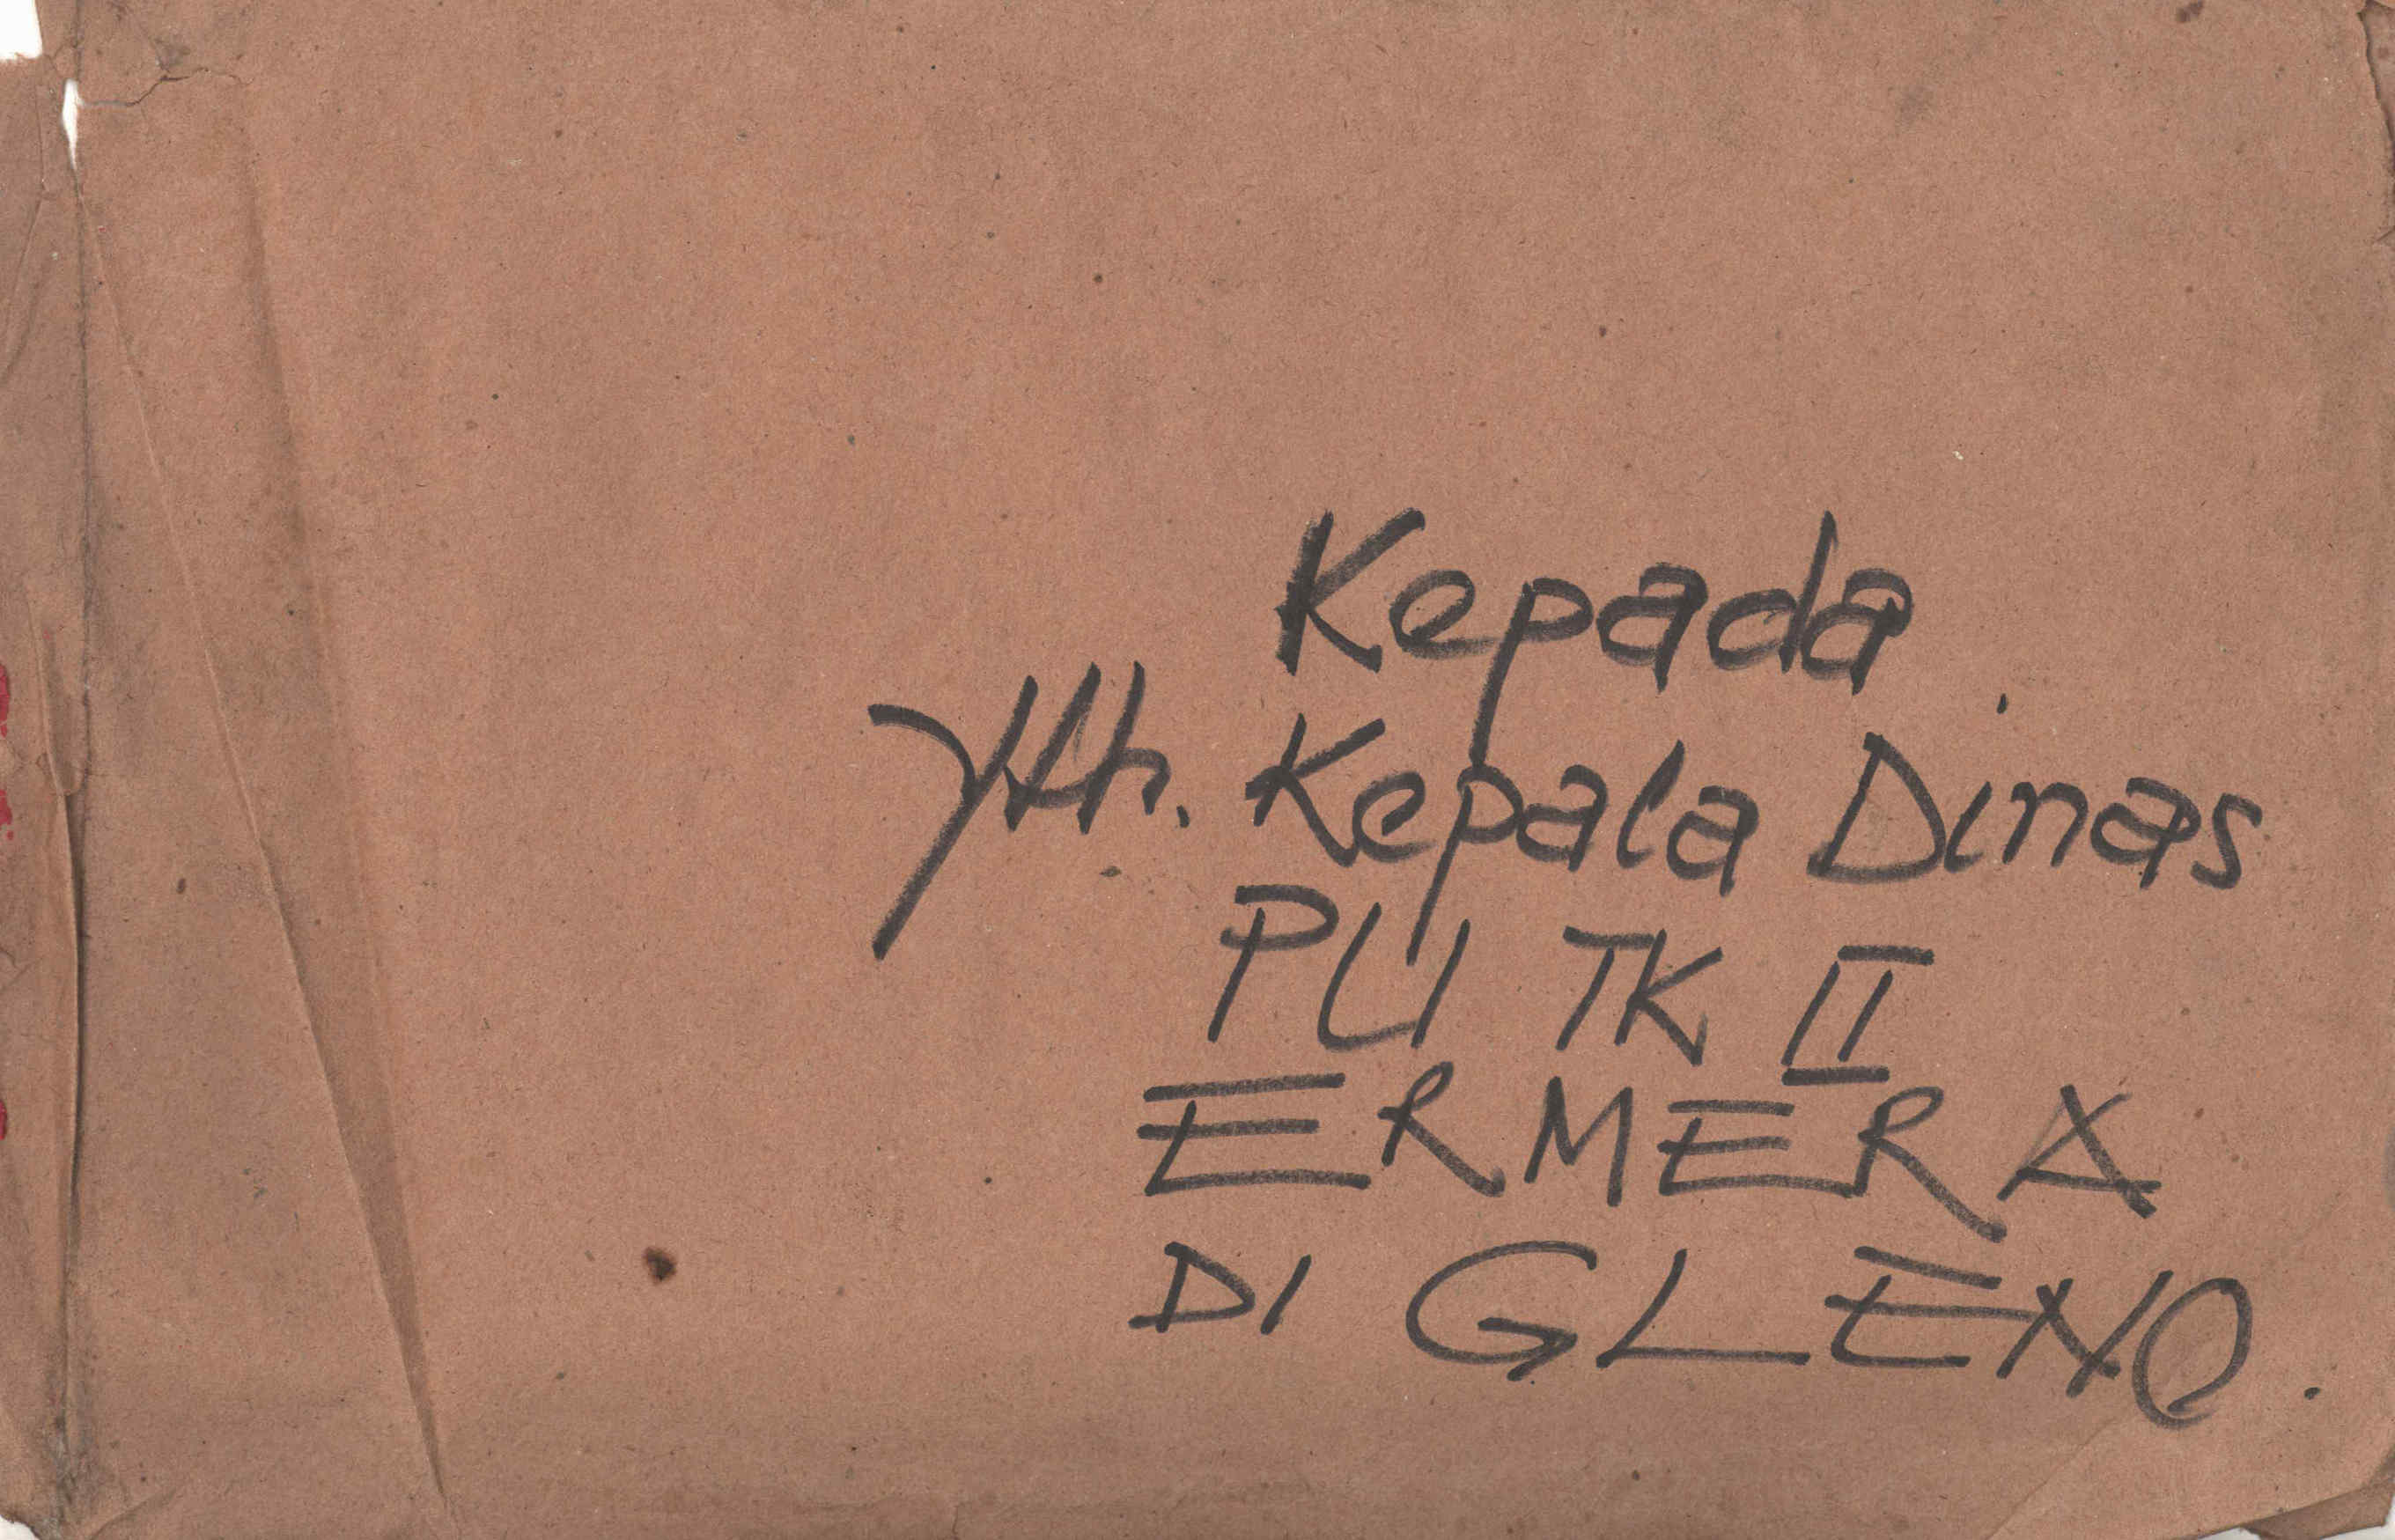 Kepada
Yth. Kepala Dinas
PU TK II
ERMERA
DI GLENO.